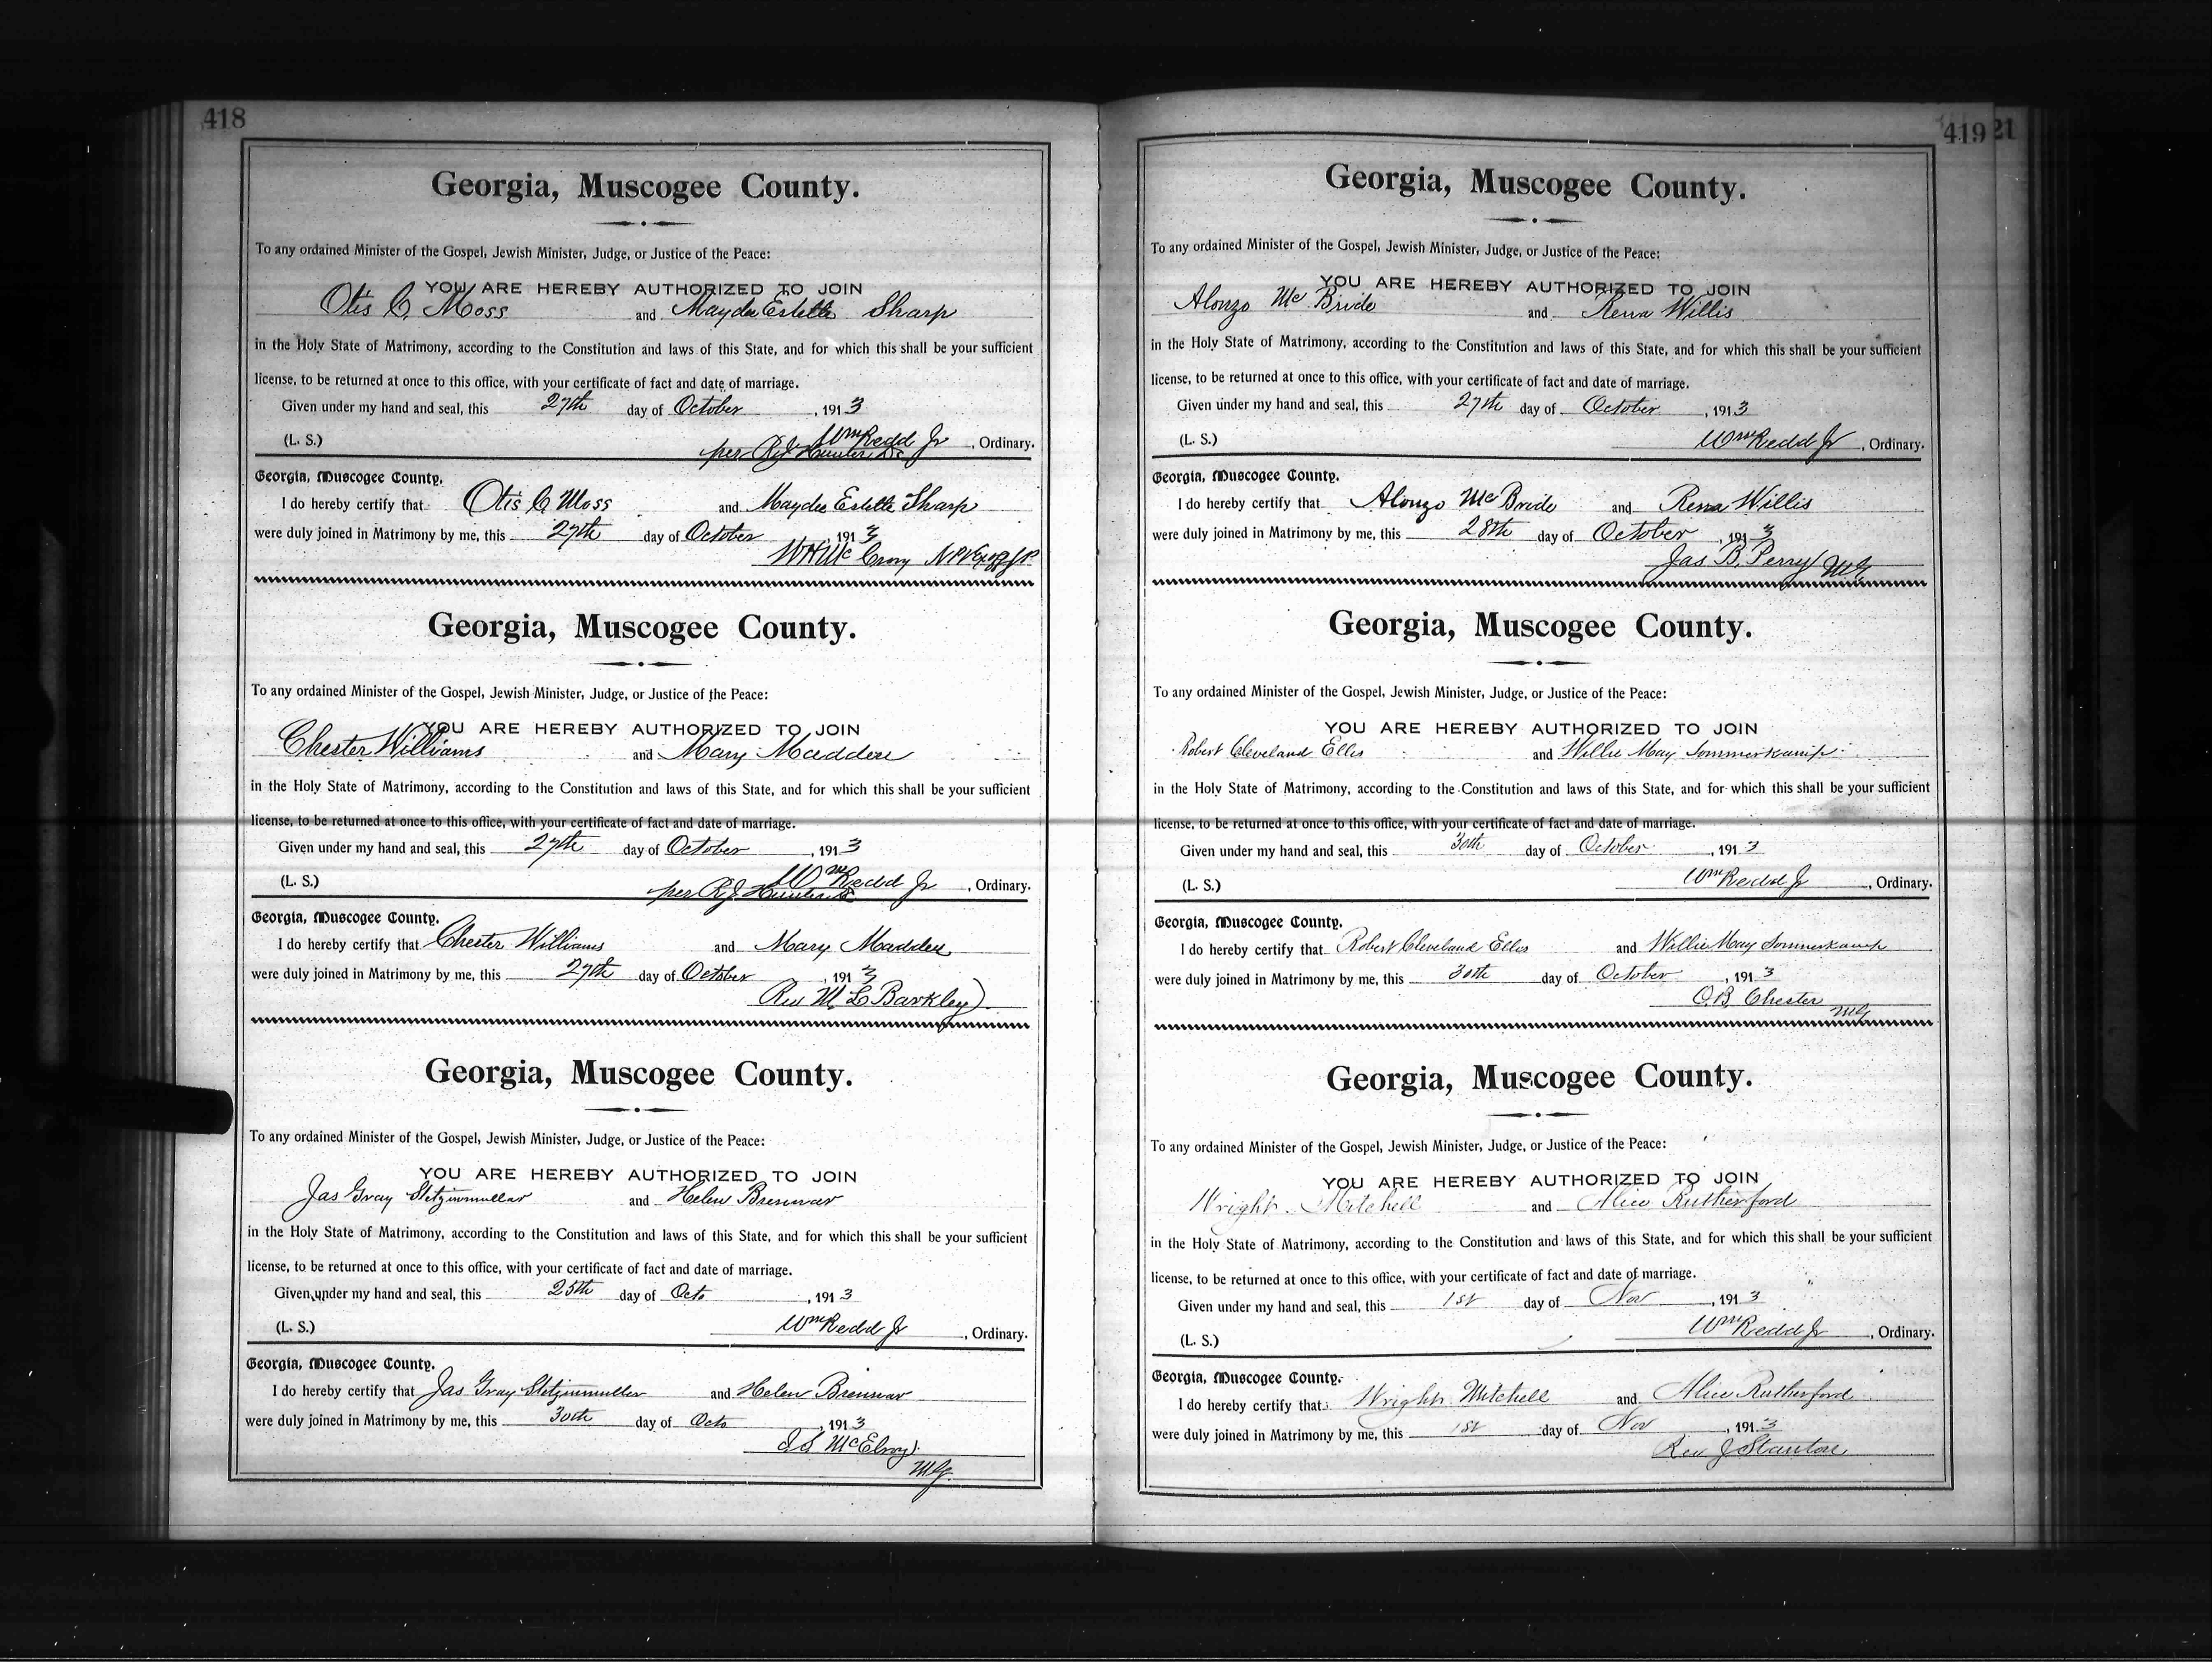 418
Georgia, Muscogee County.
To any ordained Minister of the Gospel, Jewish Minister, Judge, or Justice of the Peace:
YOU ARE HEREBY AUTHORIZED TO JOIN
Otis C. Moss and Maydee Estelle Sharp
in the Holy State of Matrimony, according to the Constitution and laws of this State, and for which this shall be your sufficient
license, to be returned at once to this office, with your certificate of fact and date of marriage.
Given under my hand and seal, this 27th day of October, 1913
(L. S.) Wm Redd Jr, Ordinary.
per R J Hunter
Georgia, Muscogee County.
I do hereby certify that Otis C Moss and Maydee Estelle Sharp
were duly joined in Matrimony by me, this 27th day of October, 1913
W H McCrory
Georgia, Muscogee County.
To any ordained Minister of the Gospel, Jewish Minister, Judge, or Justice of the Peace:
YOU ARE HEREBY AUTHORIZED TO JOIN
Chester Williams and Mary Madden
in the Holy State of Matrimony, according to the Constitution and laws of this State, and for which this shall be your sufficient
license, to be returned at once to this office, with your certificate of fact and date of marriage.
Given under my hand and seal, this 27th day of October, 1913
(L. S.) Wm Redd Jr, Ordinary.
per R J Hunter
Georgia, Muscogee County.
I do hereby certify that Chester Williams and Mary Madden
were duly joined in Matrimony by me, this 27th day of October, 1913
Rev M. L Barkley
Georgia, Muscogee County.
To any ordained Minister of the Gospel, Jewish Minister, Judge, or Justice of the Peace:
YOU ARE HEREBY AUTHORIZED TO JOIN
Jas Gray Stetzinmuller and Helen Brennar
in the Holy State of Matrimony, according to the Constitution and laws of this State, and for which this shall be your sufficient
license, to be returned at once to this office, with your certificate of fact and date of marriage.
Given under my hand and seal, this 25th day of Octo, 1913
(L. S.) Wm Redd Jr, Ordinary.
Georgia, Muscogee County.
I do hereby certify that Jas Gray Stetzinmuller and Helen Brennar
were duly joined in Matrimony by me, this 30th day of Octo, 1913
I S McElroy
MG
419 21
Georgia, Muscogee County.
To any ordained Minister of the Gospel, Jewish Minister, Judge, or Justice of the Peace:
YOU ARE HEREBY AUTHORIZED TO JOIN
Alonzo McBride and Rena Willis
in the Holy State of Matrimony, according to the Constitution and laws of this State, and for which this shall be your sufficient
license, to be returned at once to this office, with your certificate of fact and date of marriage.
Given under my hand and seal, this 27th day of October, 1913
(L. S.) Wm Redd Jr, Ordinary.
Georgia, Muscogee County.
I do hereby certify that Alonzo McBride and Rena Willis
were duly joined in Matrimony by me, this 28th day of October, 1913
Jas B. Perry MG
Georgia, Muscogee County.
To any ordained Minister of the Gospel, Jewish Minister, Judge, or Justice of the Peace:
YOU ARE HEREBY AUTHORIZED TO JOIN
Robert Cleveland Ellis and Willie May Sommerkamp
in the Holy State of Matrimony, according to the Constitution and laws of this State, and for which this shall be your sufficient
license, to be returned at once to this office, with your certificate of fact and date of marriage.
Given under my hand and seal, this 30th day of October, 1913
(L. S.) Wm Redd Jr, Ordinary.
Georgia, Muscogee County.
I do hereby certify that Robert Cleveland Ellis and Willie May Sommerkamp
were duly joined in Matrimony by me, this 30th day of October, 1913
O. B. Chester
MG
Georgia, Muscogee County.
To any ordained Minister of the Gospel, Jewish Minister, Judge, or Justice of the Peace:
YOU ARE HEREBY AUTHORIZED TO JOIN
Wright Mitchell and Alice Rutherford
in the Holy State of Matrimony, according to the Constitution and laws of this State, and for which this shall be your sufficient
license, to be returned at once to this office, with your certificate of fact and date of marriage.
Given under my hand and seal, this 1st day of Nov, 1913
(L. S.) Wm Redd Jr, Ordinary.
Georgia, Muscogee County.
I do hereby certify that Wright Mitchell and Alice Rutherford
were duly joined in Matrimony by me, this 1st day of Nov, 1913
Rev J Stanton